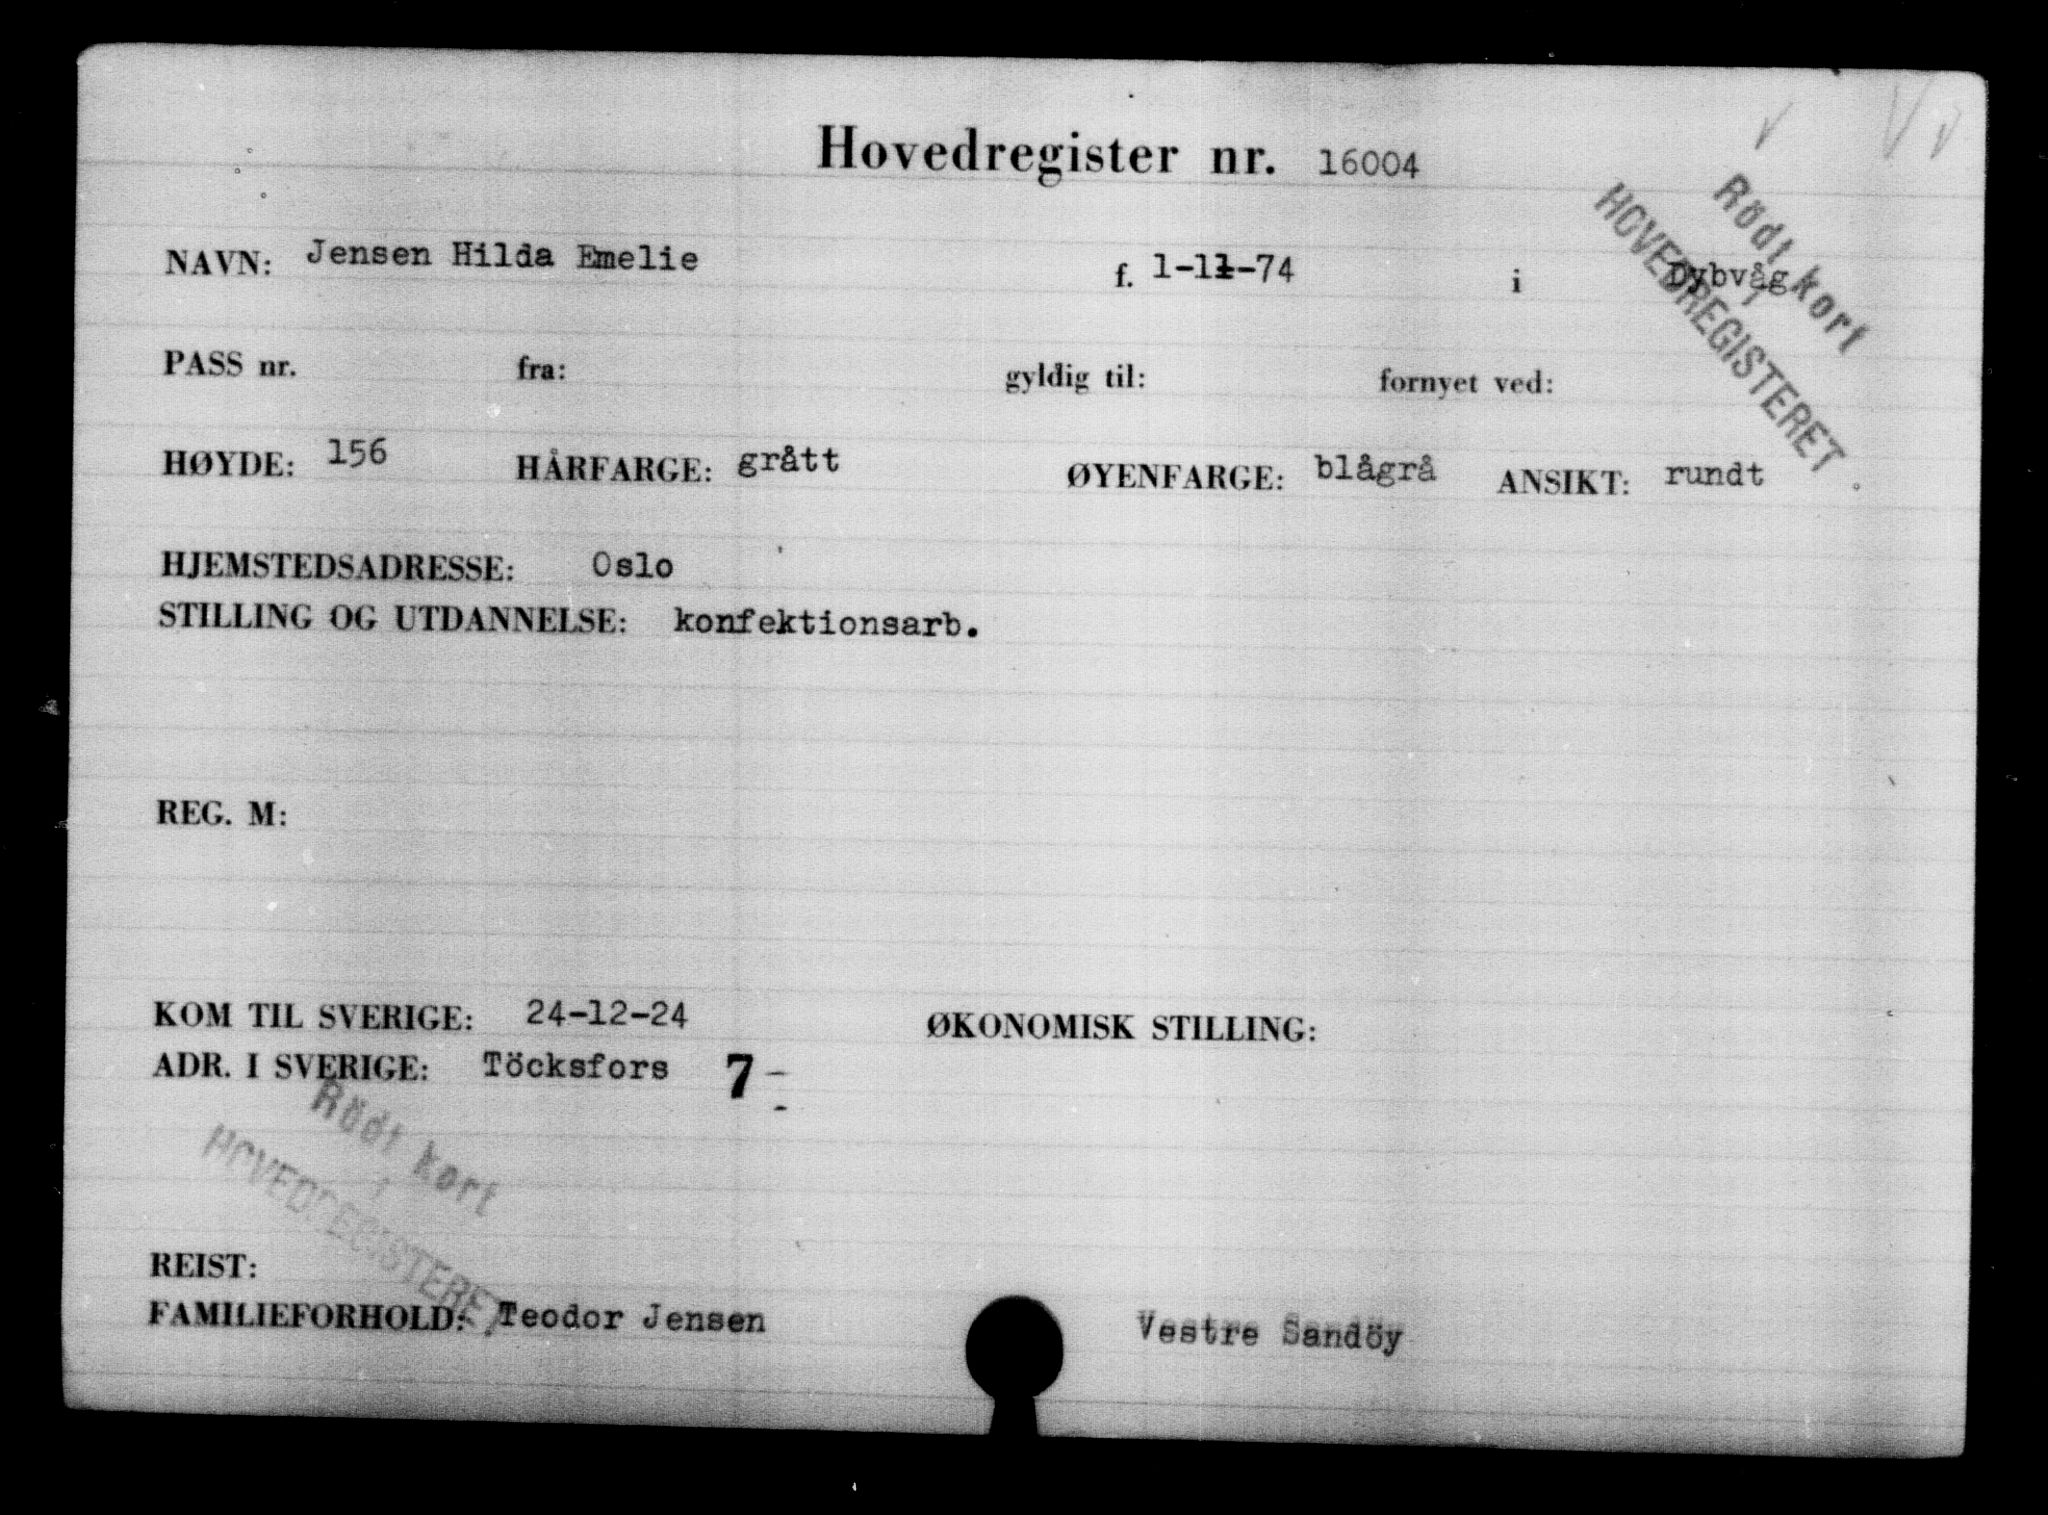 Hovedregister nr. 16004
Rödt kort
i
HOVEDREGISTERET
NAVN: Jensen Hilda Emelie f. 1-11-74 i Dybvåg
PASS nr. fra: gyldig til: fornyet ved:
HØYDE: 156 HÅRFARGE: grått ØYENFARGE: blågrå ANSIKT: rundt
HJEMSTEDSADRESSE: Oslo
STILLING OG UTDANNELSE: konfektionsarb.
REG. M:
KOM TIL SVERIGE: 24-12-24 ØKONOMISK STILLING:
ADR. I SVERIGE: Töcksfors 7-
Rödt kort
i
HOVEDREGISTERET
REIST:
FAMILIEFORHOLD: Teodor Jensen Vestre Sandöy